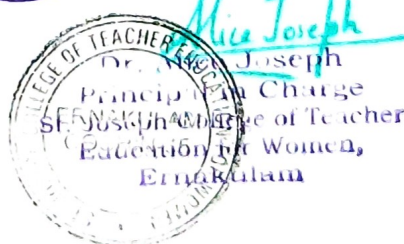 Alice Joseph
Dr. Alice Joseph
Principal in Charge
St. Joseph College of Teacher
Education for Women,
Ernakulam
COLLEGE OF TEACHER EDUCATION
ERNAKULAM
WOMEN